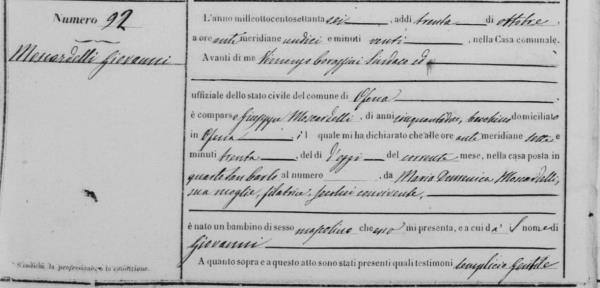 Numero 92
Moscardelli Giovanni
L'anno millottocentosettanta sei, addì trenta di ottobre
a ore anti meridiane undici e minuti venti, nella Casa comunale.
Avanti di me Vincenzo Sindaco ed
uffiziale dello stato civile del comune di Ofena
è comparso Giuseppe Moscardelli, di anni domiciliato
in Ofena il quale mi ha dichiarato che alle ore ante meridiane sette e
minuti trenta, del dì d'oggi del corrente mese, nella casa posta in
al numero , da Maria Domenica Moscardelli,
sua moglie, filatrice, convivente,
è nato un bambino di sesso mascolino che esso mi presenta, e a cui dà il nome di
Giovanni
A quanto sopra e a questo atto sono stati presenti quali testimoni Simplicio Gentile
* S'indichi la professione, o la condizione.